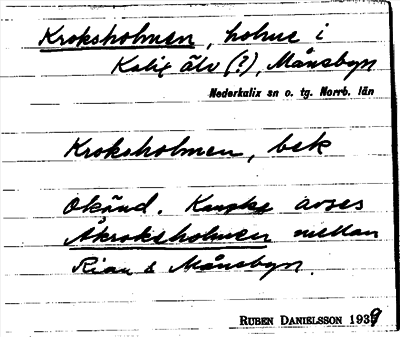 Kroksholmen, holme i
Kalix älv (?), Månsbyn
Nederkalix sn o. tg. Norrb. län
Kroksholmen, bek
Okänd. Kanske avses
Åkroksholmen mellan
Rian & Månsbyn.
RUBEN DANIELSSON 1939